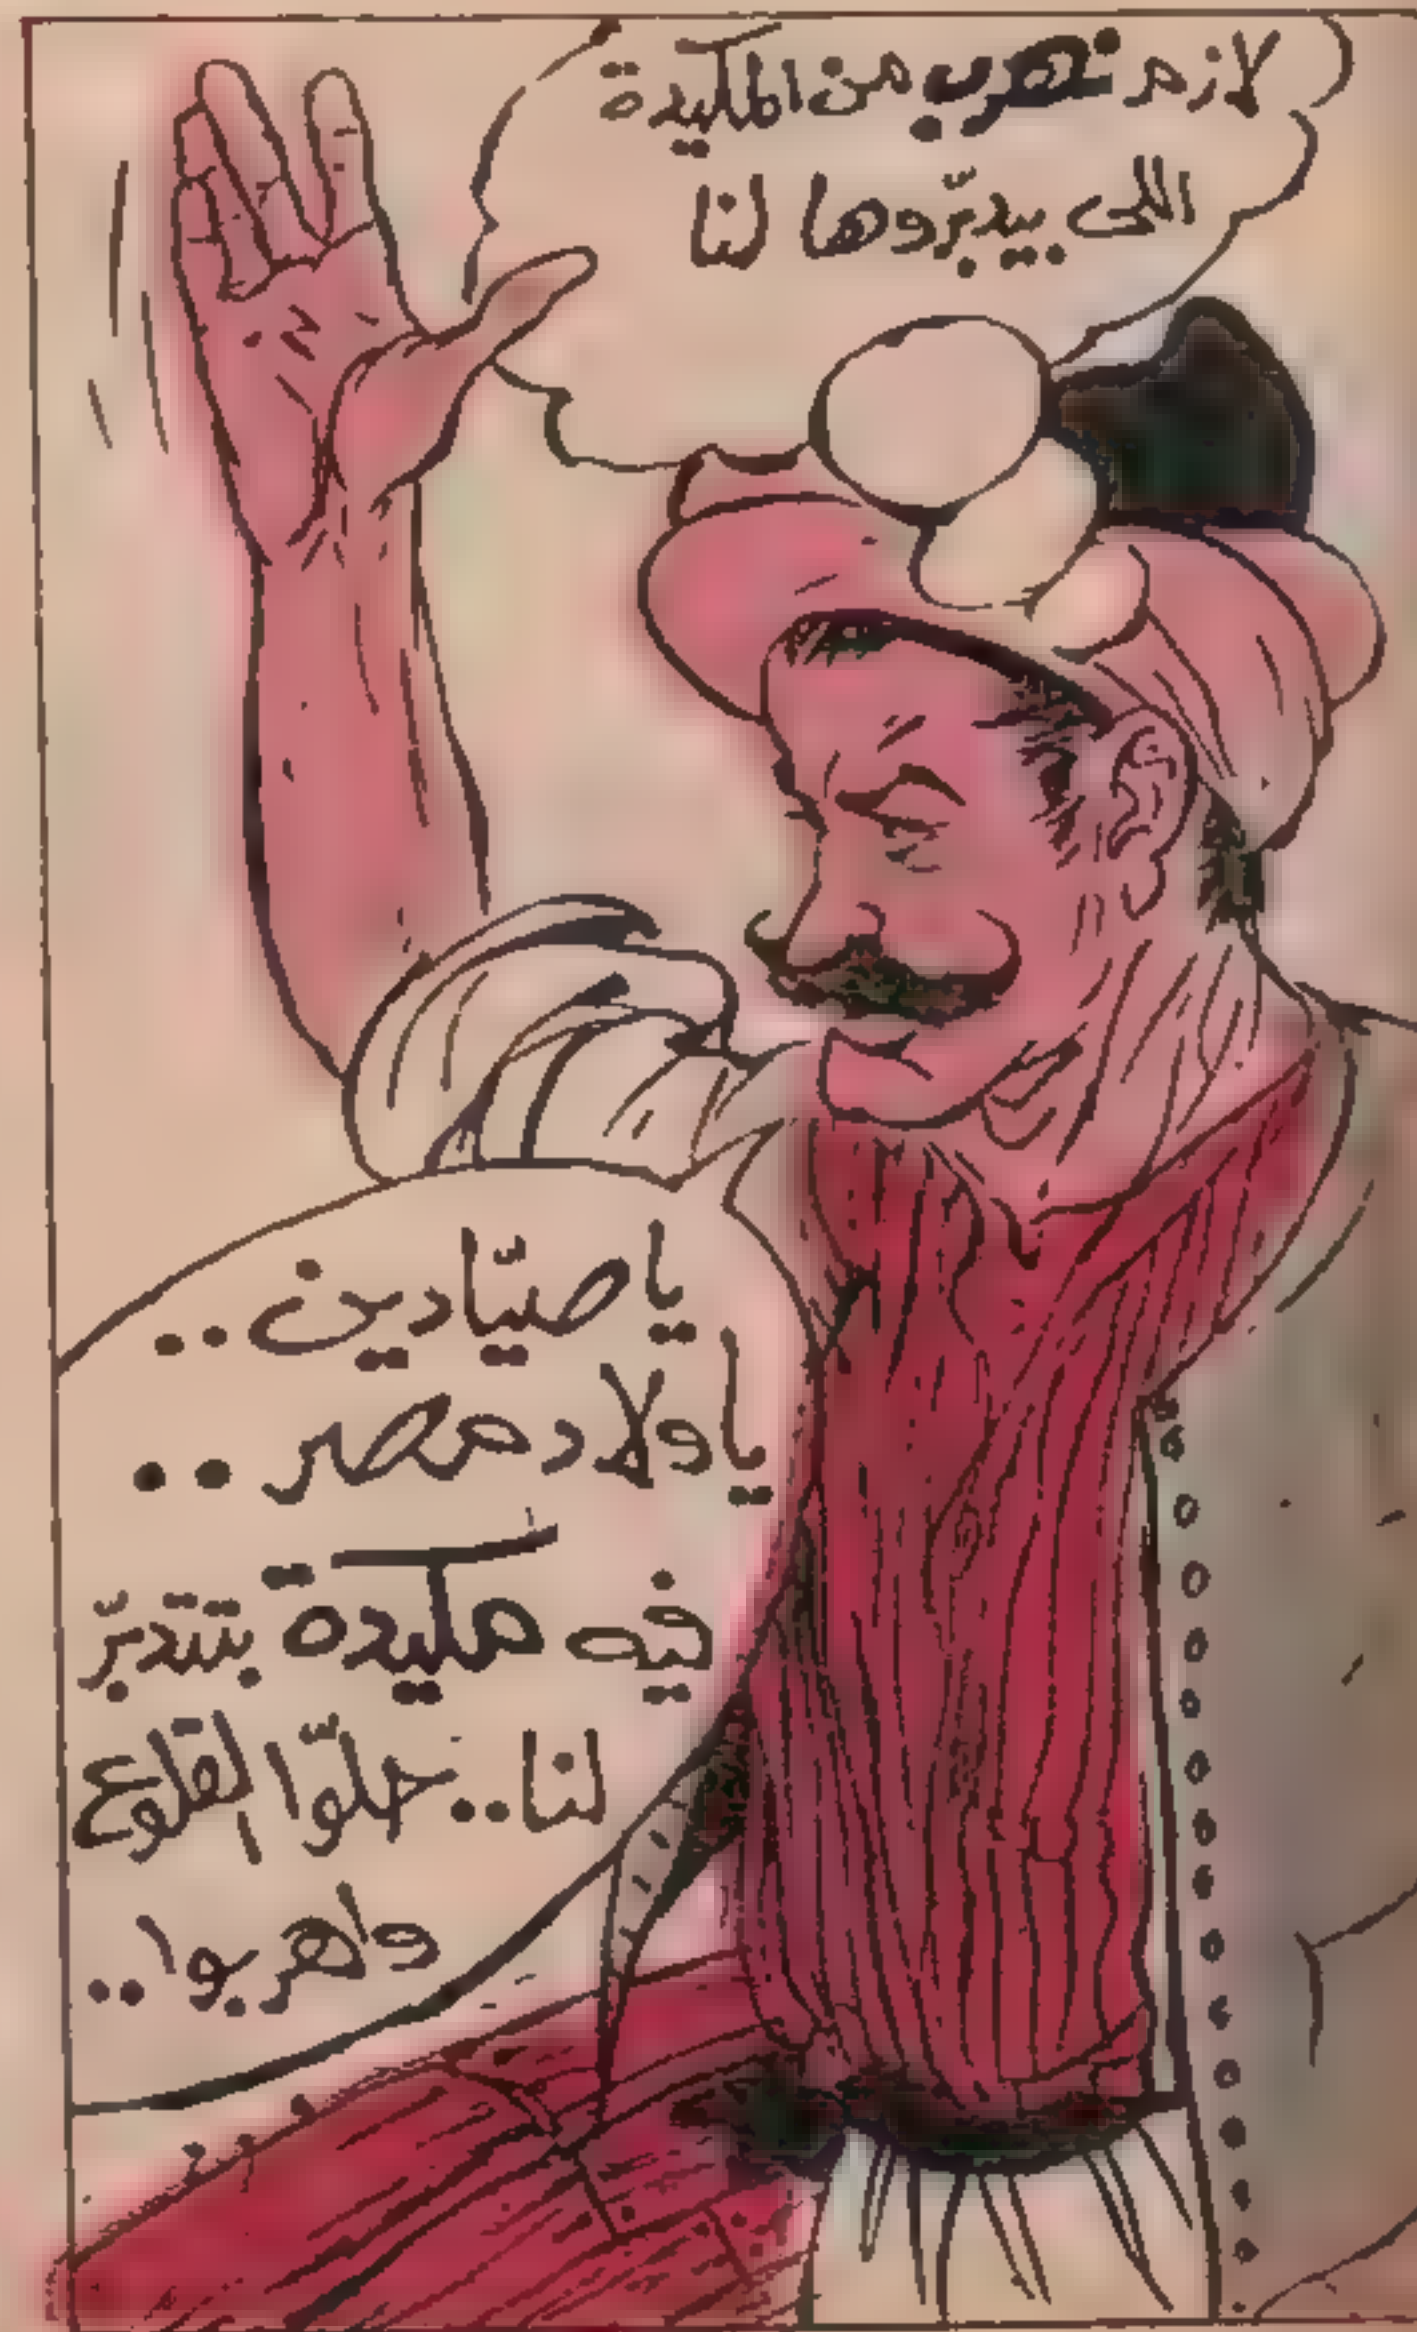 لازم نهرب من المكيدة
اللى بيدبّروها لنا
يا صيّادين ..
يا ولاد مصر ..
فيه مكيدة بتتدبّر
لنا .. حلّوا القلوع
واهربوا ..